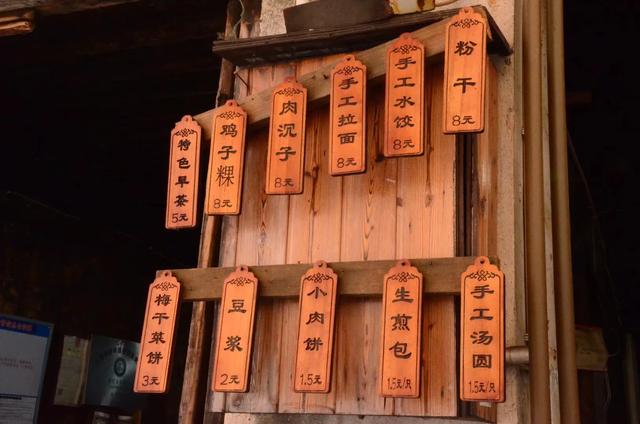 特色早茶
5元
鸡子粿
8元
肉沉子
8元
手工拉面
8元
手工水饺
8元
粉干
8元
梅干菜饼
3元
豆浆
2元
小肉饼
1.5元
生煎包
1.5元/只
手工汤圆
1.5元/只